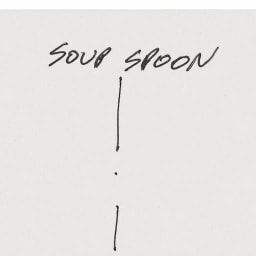 SOUP SPOON